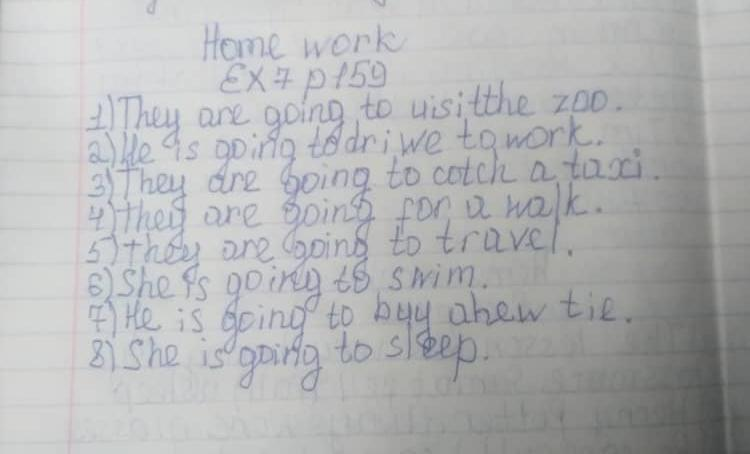 Home work
EX 7 p 159
1) They are going to uisitthe zoo.
2) He is going to driwe to work.
3) They are going to cotch a taxi.
4) they are going for a walk.
5) they are going to travel.
6) She is going to swim.
7) He is going to buy ahew tie.
8) She is going to sleep.